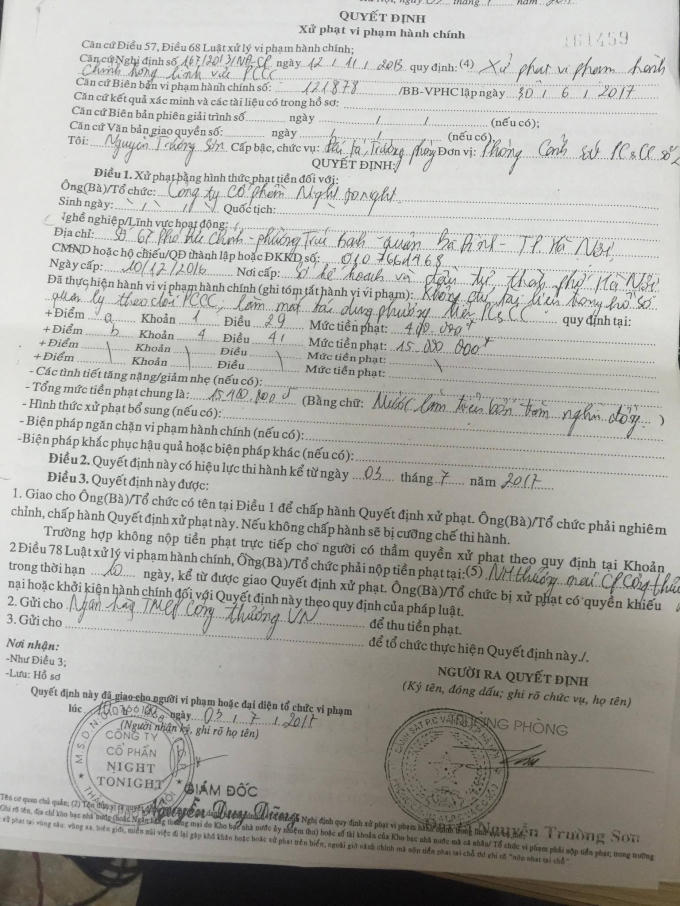 QUYẾT ĐỊNH
Xử phạt vi phạm hành chính
161459
Căn cứ Điều 57, Điều 68 Luật xử lý vi phạm hành chính;
Căn cứ Nghị định số 167/2013/NĐ-CP ngày 12 / 11 / 2013 quy định: (4) Xử phạt vi phạm hành
chính trong lĩnh vực PCCC
Căn cứ Biên bản vi phạm hành chính số: 121878 /BB-VPHC lập ngày 30 / 6 / 2017
Căn cứ kết quả xác minh và các tài liệu có trong hồ sơ:
Căn cứ Biên bản phiên giải trình số ngày / / (nếu có);
Căn cứ Văn bản giao quyền số: ngày / / (nếu có)
Tôi: Nguyễn Trường Sơn Cấp bậc, chức vụ: Đại tá, Trưởng phòng Đơn vị: Phòng Cảnh sát PC&CC số
QUYẾT ĐỊNH:
Điều 1. Xử phạt bằng hình thức phạt tiền đối với:
Ông(Bà)/Tổ chức: Công ty Cổ phần Night tonight
Sinh ngày: / / Quốc tịch:
Nghề nghiệp/Lĩnh vực hoạt động:
Địa chỉ: Số 67 Phó Đức Chính - phường Trúc Bạch - quận Ba Đình - TP. Hà Nội
CMND hoặc hộ chiếu/QĐ thành lập hoặc ĐKKD số: 0107661468
Ngày cấp: 20/12/2016 Nơi cấp: Sở kế hoạch và đầu tư, thành phố Hà Nội
Đã thực hiện hành vi vi phạm hành chính (ghi tóm tắt hành vi vi phạm): Không đủ tài liệu trong hồ sơ
quản lý theo dõi PCCC, làm mất tác dụng phương tiện PC&CC quy định tại:
+Điểm a Khoản 1 Điều 29 Mức tiền phạt: 400 000đ
+Điểm b Khoản 4 Điều 41 Mức tiền phạt: 15 000 000đ
+Điểm Khoản Điều Mức tiền phạt:
+Điểm Khoản Điều Mức tiền phạt:
- Các tình tiết tăng nặng/giảm nhẹ (nếu có):
- Tổng mức tiền phạt chung là: 15.400.000đ (Bằng chữ: Mười lăm triệu bốn trăm nghìn đồng )
- Hình thức xử phạt bổ sung (nếu có):
- Biện pháp ngăn chặn vi phạm hành chính (nếu có):
-Biện pháp khắc phục hậu quả hoặc biện pháp khác (nếu có):
Điều 2. Quyết định này có hiệu lực thi hành kể từ ngày 03 tháng 7 năm 2017
Điều 3. Quyết định này được:
1. Giao cho Ông(Bà)/Tổ chức có tên tại Điều 1 để chấp hành Quyết định xử phạt. Ông(Bà)/Tổ chức phải nghiêm
chỉnh, chấp hành Quyết định xử phạt này. Nếu không chấp hành sẽ bị cưỡng chế thi hành.
Trường hợp không nộp tiền phạt trực tiếp cho người có thẩm quyền xử phạt theo quy định tại Khoản
2 Điều 78 Luật xử lý vi phạm hành chính, Ông(Bà)/Tổ chức phải nộp tiền phạt tại: (5) NH thương mại CP Công thương
trong thời hạn 10 ngày, kể từ được giao Quyết định xử phạt. Ông(Bà)/Tổ chức bị xử phạt có quyền khiếu
nại hoặc khởi kiện hành chính đối với Quyết định này theo quy định của pháp luật.
2. Gửi cho Ngân hàng TMCP Công thương VN để thu tiền phạt.
3. Gửi cho để tổ chức thực hiện Quyết định này./.
Nơi nhận:
-Như Điều 3;
-Lưu: Hồ sơ
NGƯỜI RA QUYẾT ĐỊNH
(Ký tên, đóng dấu; ghi rõ chức vụ, họ tên)
Quyết định này đã giao cho người vi phạm hoặc đại diện tổ chức vi phạm
lúc ngày 03 / 7 / 2017
(Người nhận ký, ghi rõ họ tên)
TRƯỞNG PHÒNG
CÔNG TY
CỔ PHẦN
NIGHT
TONIGHT
GIÁM ĐỐC
Nguyễn Duy Dũng
Nguyễn Trường Sơn